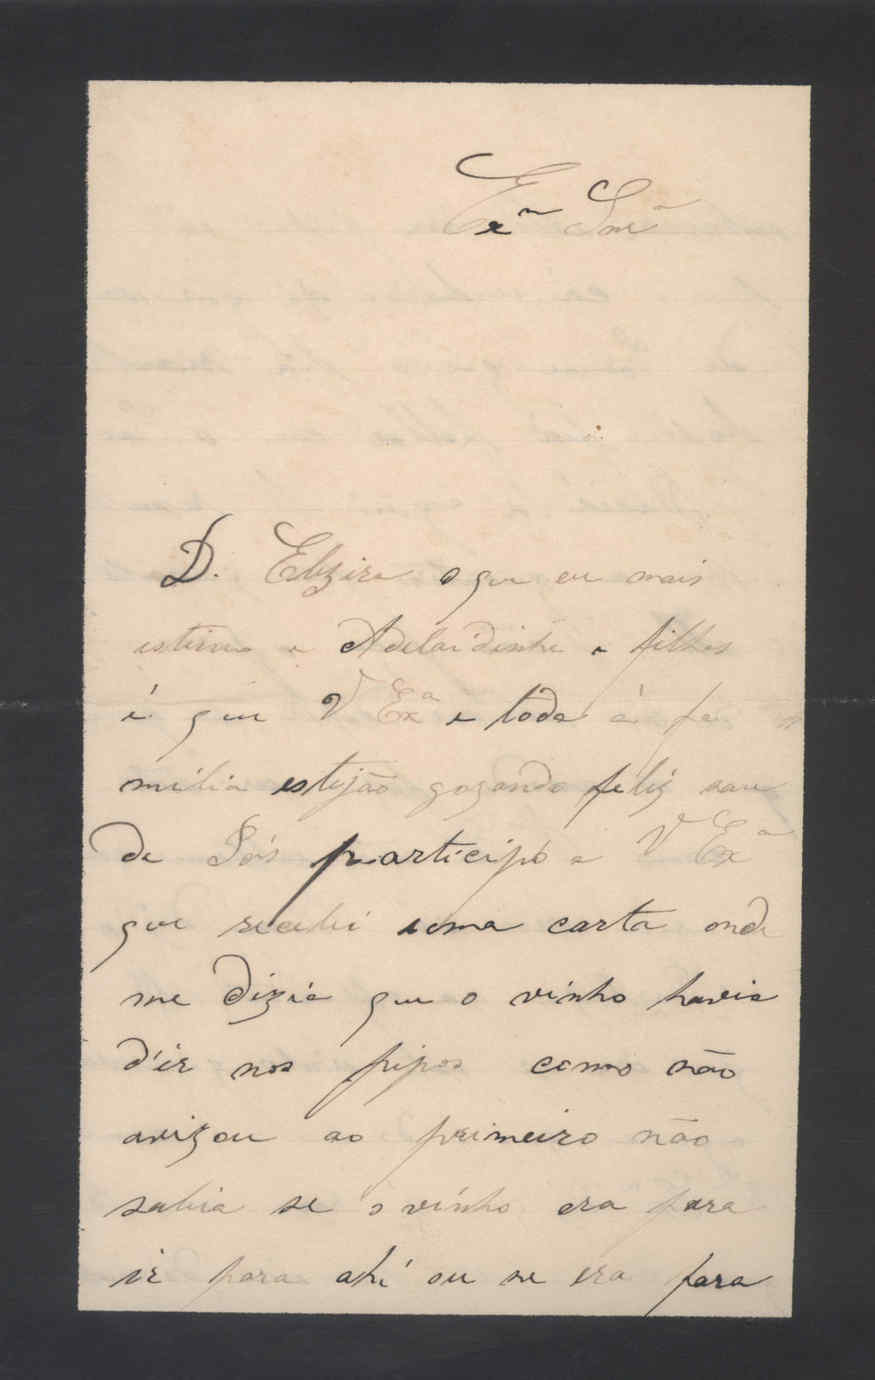 Exª Snrª
D. Elzira o que eu mais
estimo e Adelaidinha e filhos
é que V Exª e toda á fa
milia estejão gozando feliz sau
de Pois participo a V Exª
que recebi uma carta onde
me dizia que o vinho havia
d'ir nos pipos como não
avizou ao primeiro não
sabia se o vinho era para
ir para ahi ou se era para